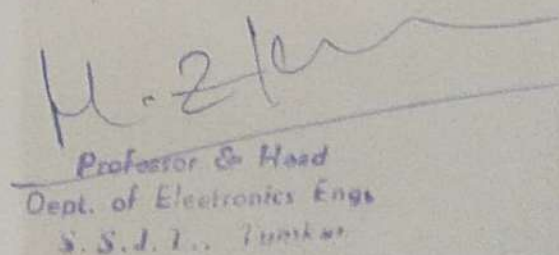 Professor & Head
Dept. of Electronics Engg
S. S. I. T., Tumkur